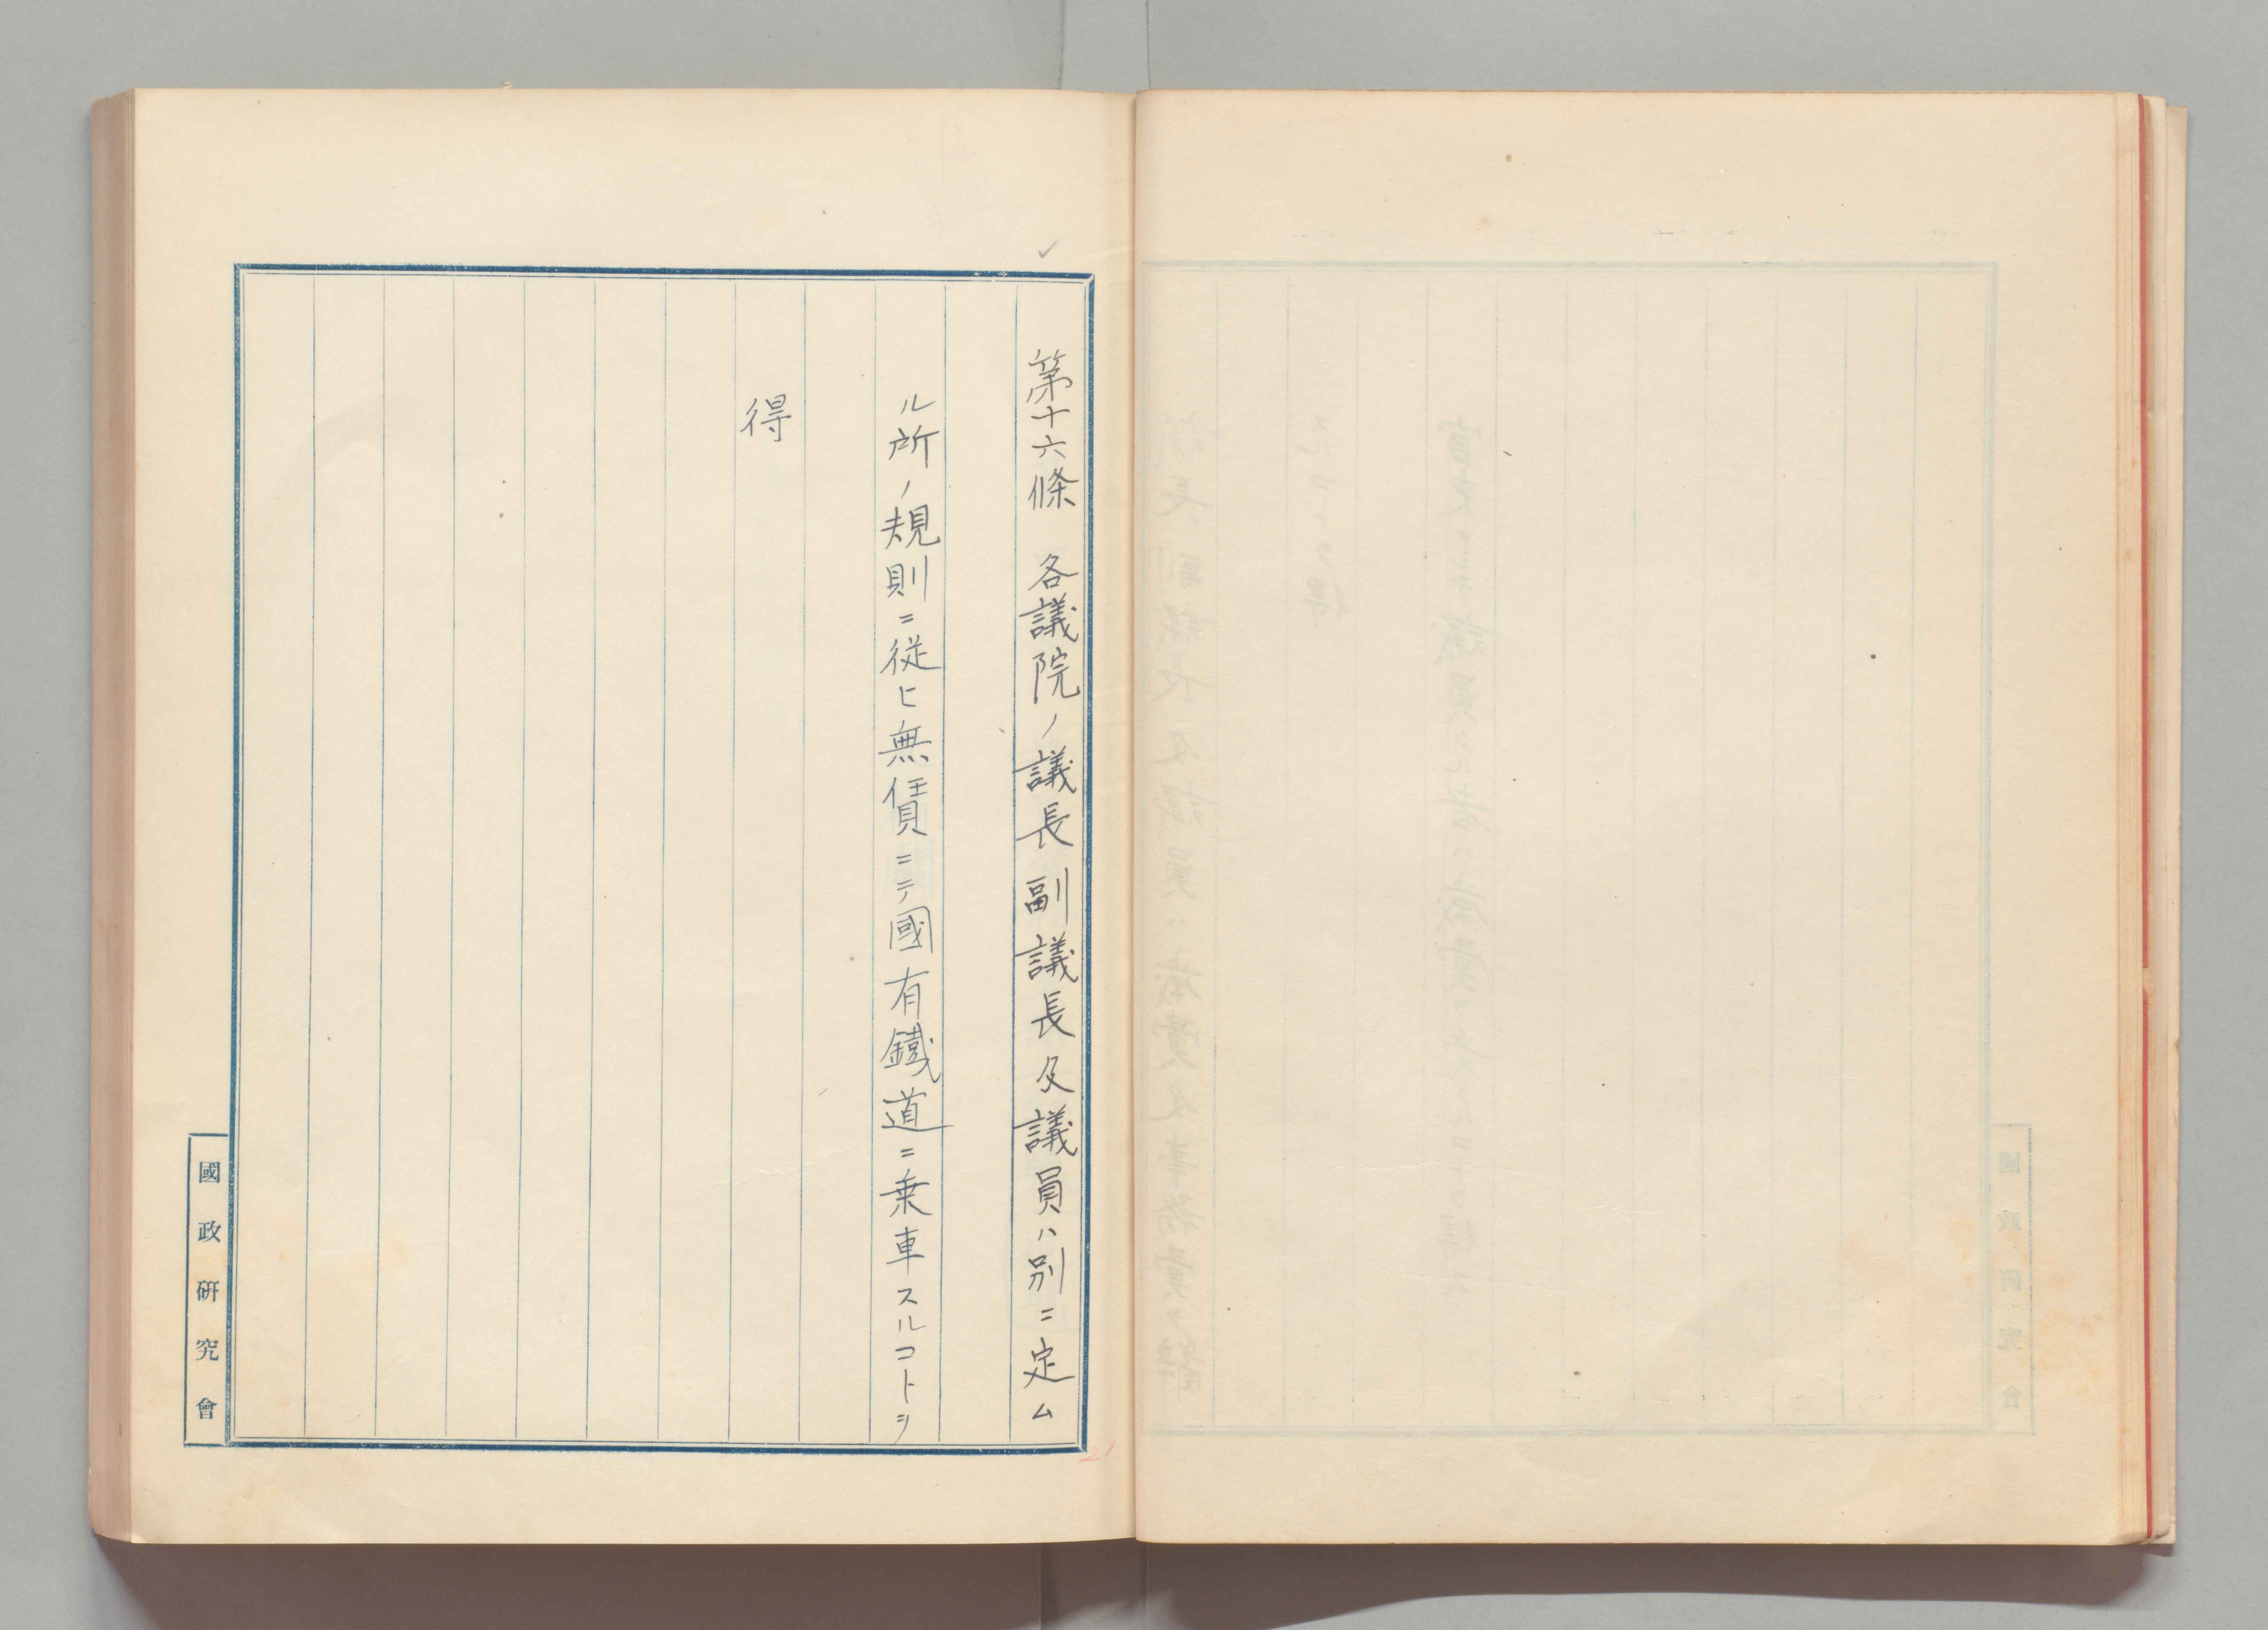 第十六條　各議院ノ議長副議長及議員ハ別ニ定ム
ル所ノ規則ニ從ヒ無賃ニテ國有鐵道ニ乗車スルコトヲ
得
國政研究會